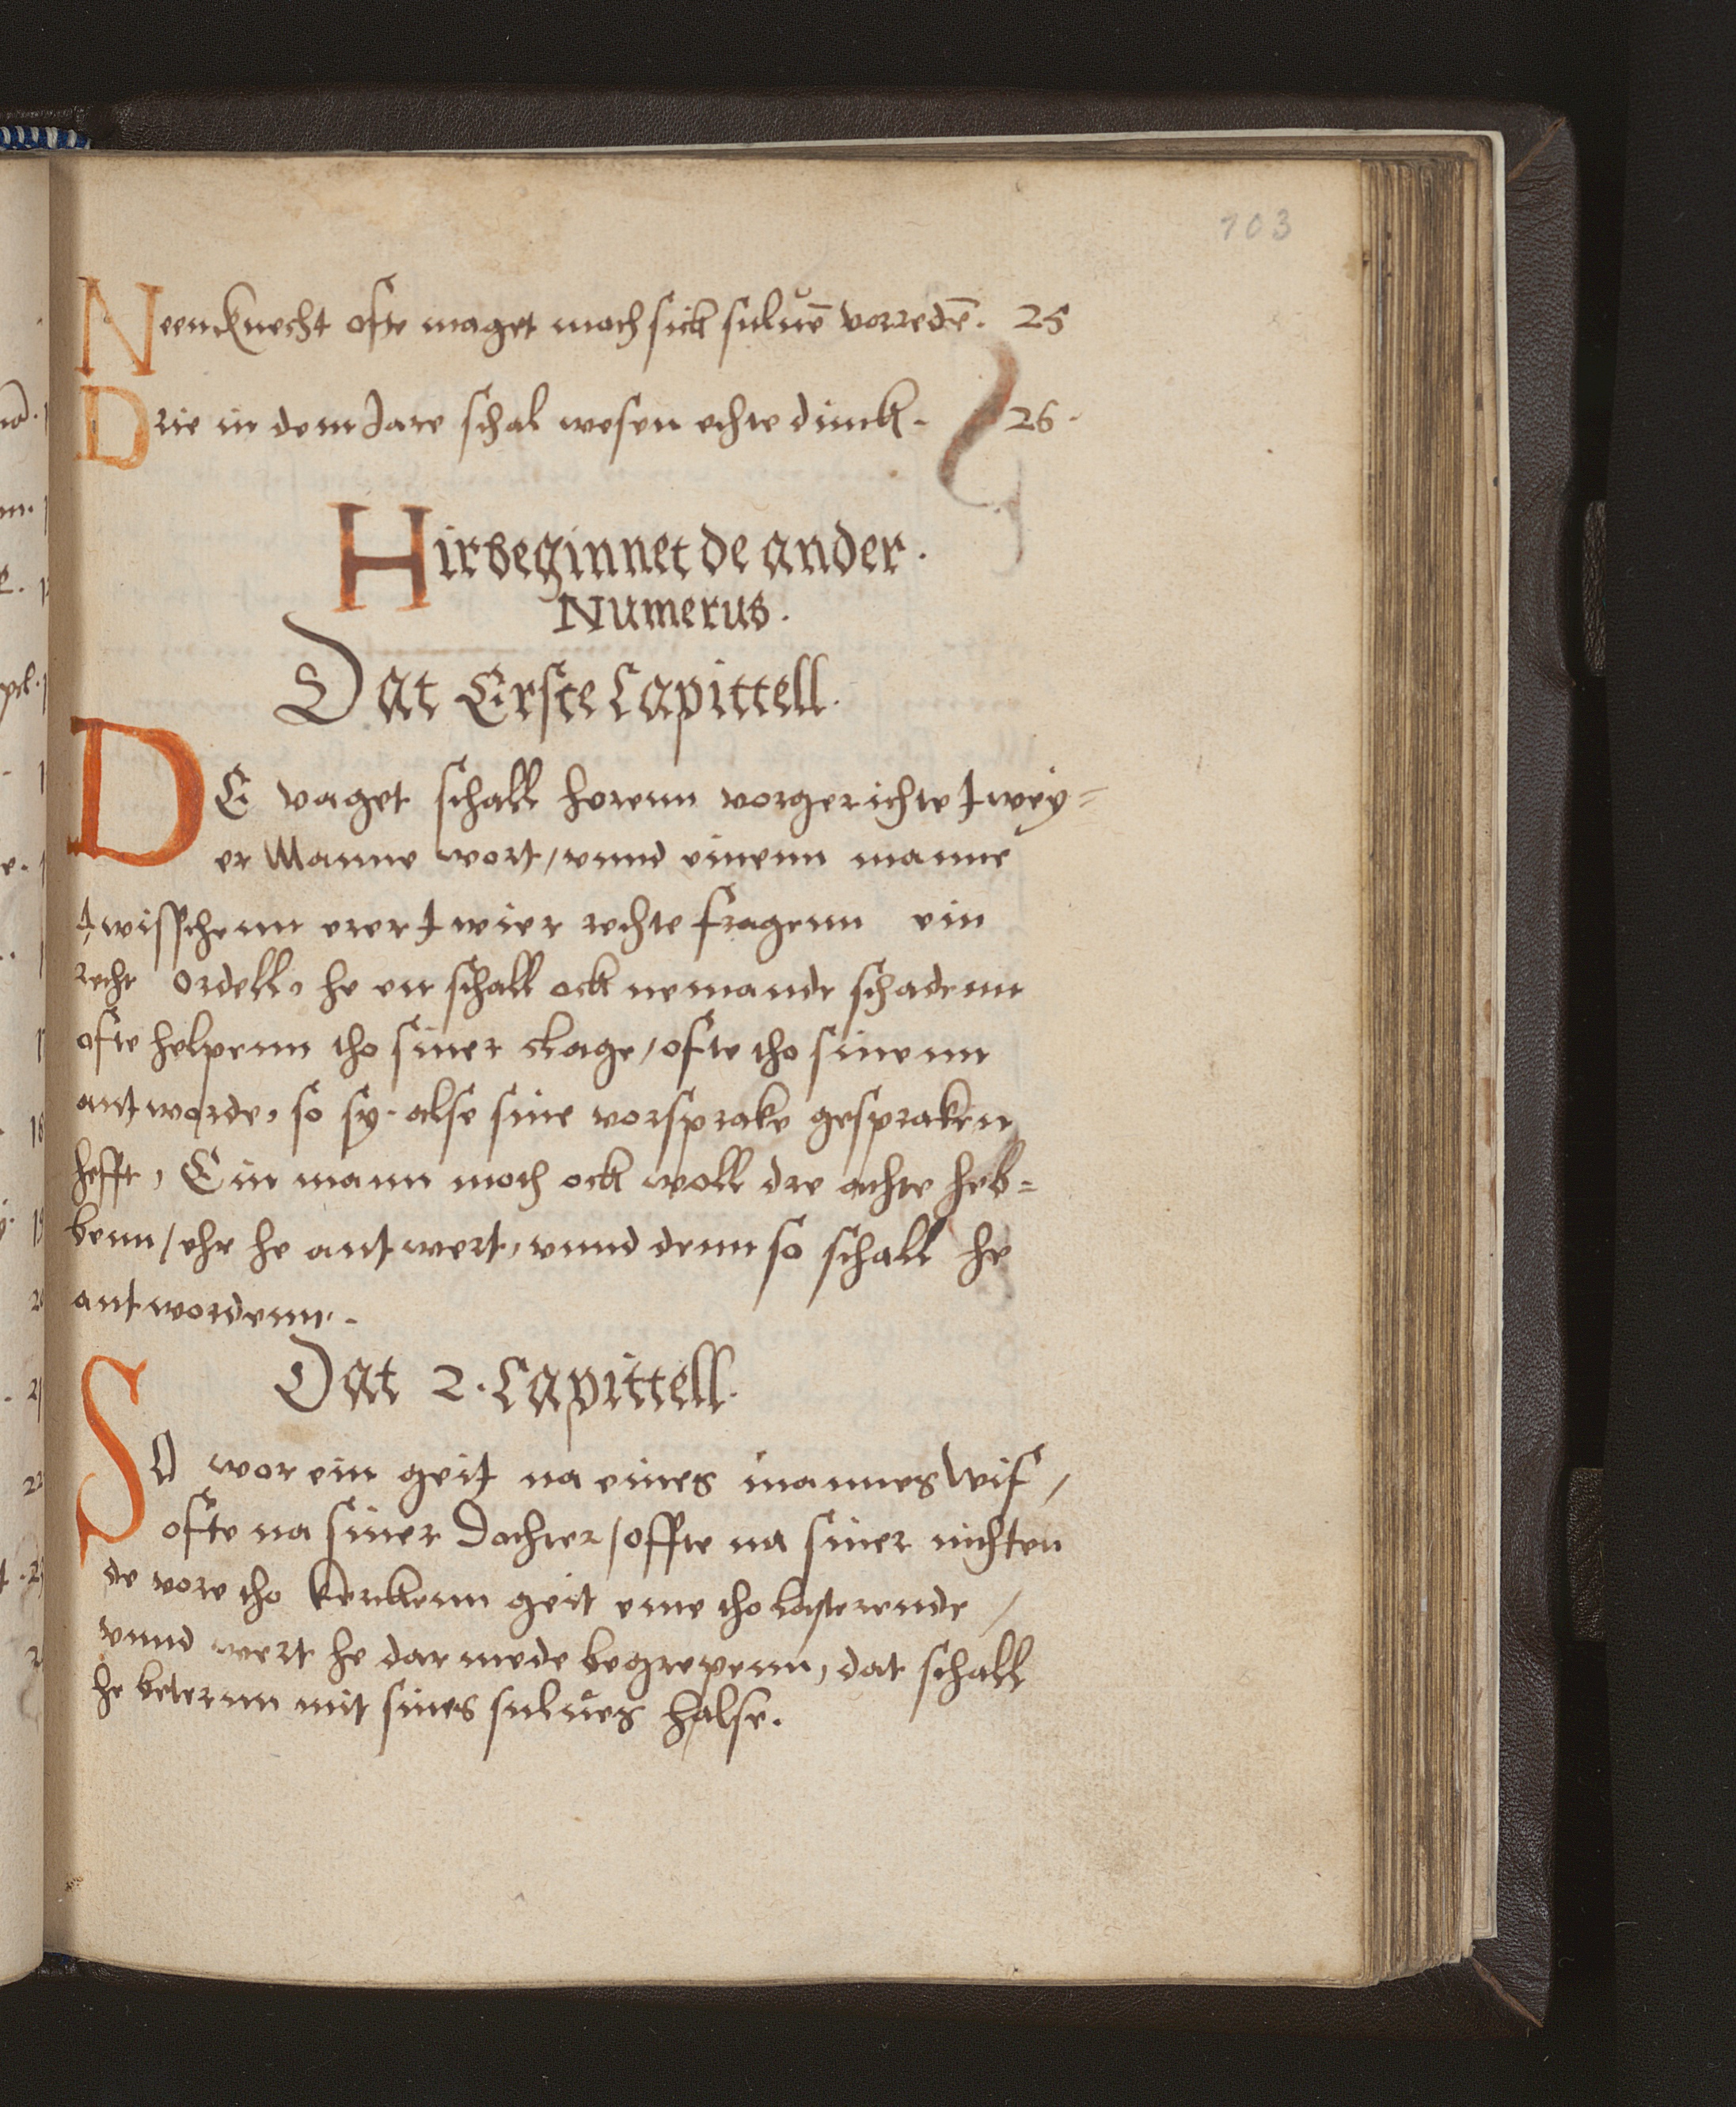 103
Neenknecht ofte maget mach sick suluē vorredē. 25
Drie in dem Jare schal wesen echte dinck. 26.
Hirbeginnet de ander.
Numerus.
Dat Erste Capittell.
DE vaget schall horenn vorgerichte twey=
er Manne wort / vnnd einenn manne
twisschenn erer twier rechte fragenn ein
recht Ordell, he en schall ock nemande schadenn
ofte helpenn tho siner clage / ofte tho sinenn
antworde, so sy. alse sine vorsprake gespraken
hefft, Ein mann moch ock woll dre achte heb=
benn / ehr he antwert, vnnd denn so schall he
antwordenn.
Dat 2. Capittell.
SO wor ein geit na eines mannes Wif /
ofte na siner Dochter / offte na siner nichten
de vore tho kerckenn geit eme tho lasterende /
vnnd wert he dar mede begrepenn, dat schall
he beterenn mit sines sulues halse.